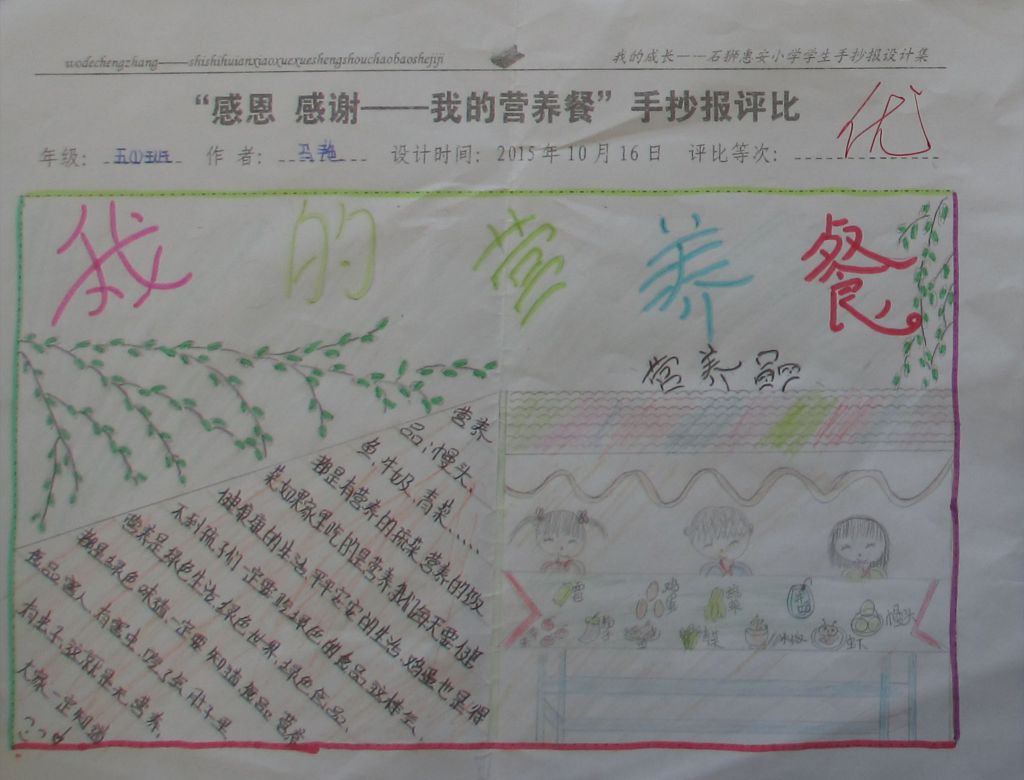 wodechengzhang——shishihuianxiaoxuexueshengshouchaobaoshejiji
我的成长——石狮惠安小学学生手抄报设计集
“感恩 感谢——我的营养餐”手抄报评比
年级: 五①班 作者: 马艳 设计时间: 2015年10月16日 评比等次: 优
我的营养餐
营养
营养
品:慢头、
鱼 牛奶、青菜、、、、
都是有营养的蔬菜 营养的饭
菜如果家里吃的是营养我们每天要健
健康康的生活,平平安安的生活,鸡蛋也是得
不到孩子们一定要吃绿色的食品,这样么
营养是绿色生活,绿色世界,绿色食品,
都是绿色味道,一定要知道食品。营养
食品害人,有害虫,吃了么肚子里
有虫子,这就是无营养,
大家一定知道
鸡蛋
青菜
虾
慢头